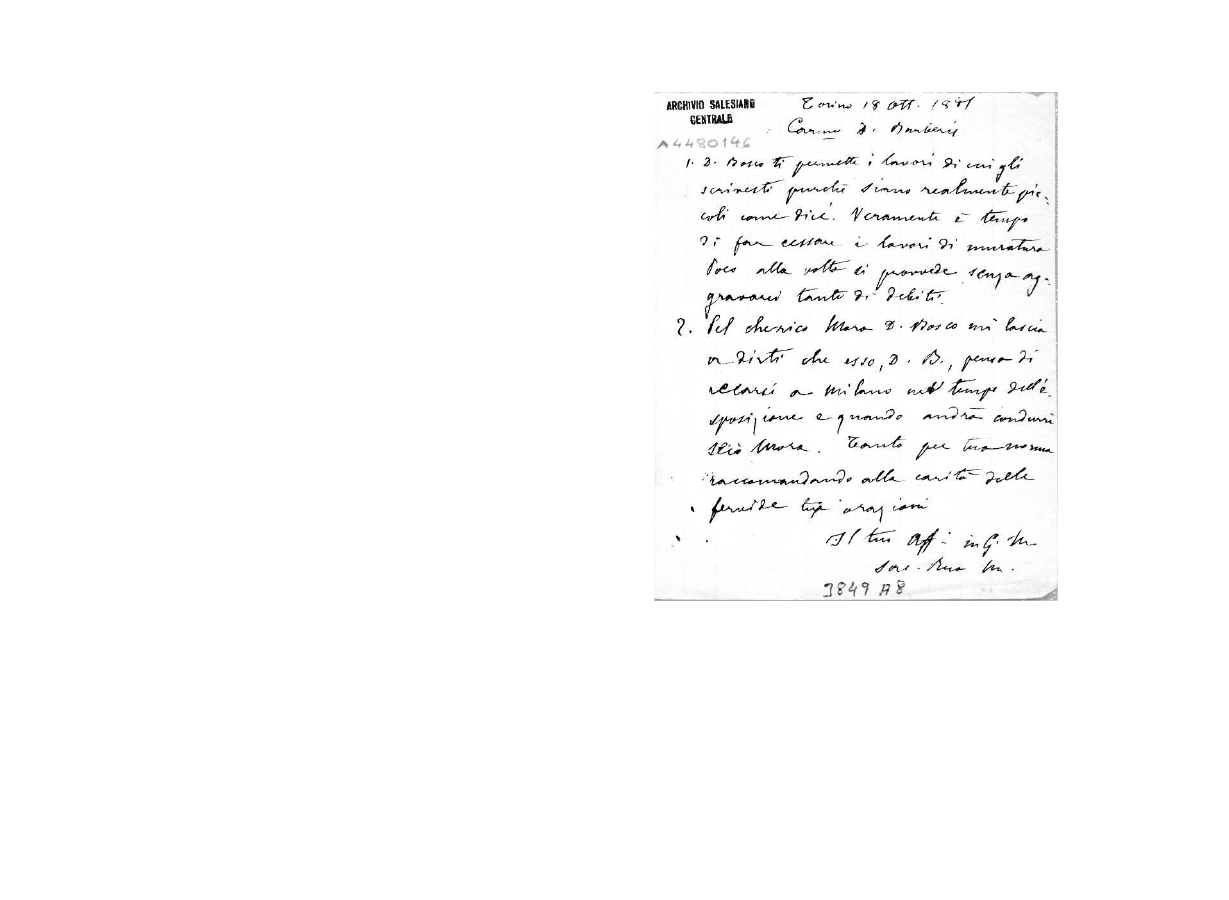 ARCHIVIO SALESIANO
CENTRALE
A4480146
Torino 18 Ott. 1881
Carmo D. Barberis
1. D. Bosco ti permette i lavori di cui gli
scrivesti purchè siano realmente pic-
coli come dici. Veramente è tempo
di far cessare i lavori di muratura
Poco alla volta si provvede senza ag-
gravarci tanto di debiti.
2. Pel cherico Mora D. Bosco mi lascia
a dirti che esso, D. B., pensa di
recarsi a Milano nel tempo dell'e-
sposizione e quando andrà condurrà
Mora. Tanto per tua norma
raccomandando alla carità delle
fervide tue orazioni
Il tuo Aff. in G. M
Sac. Rua M.
3849 A8